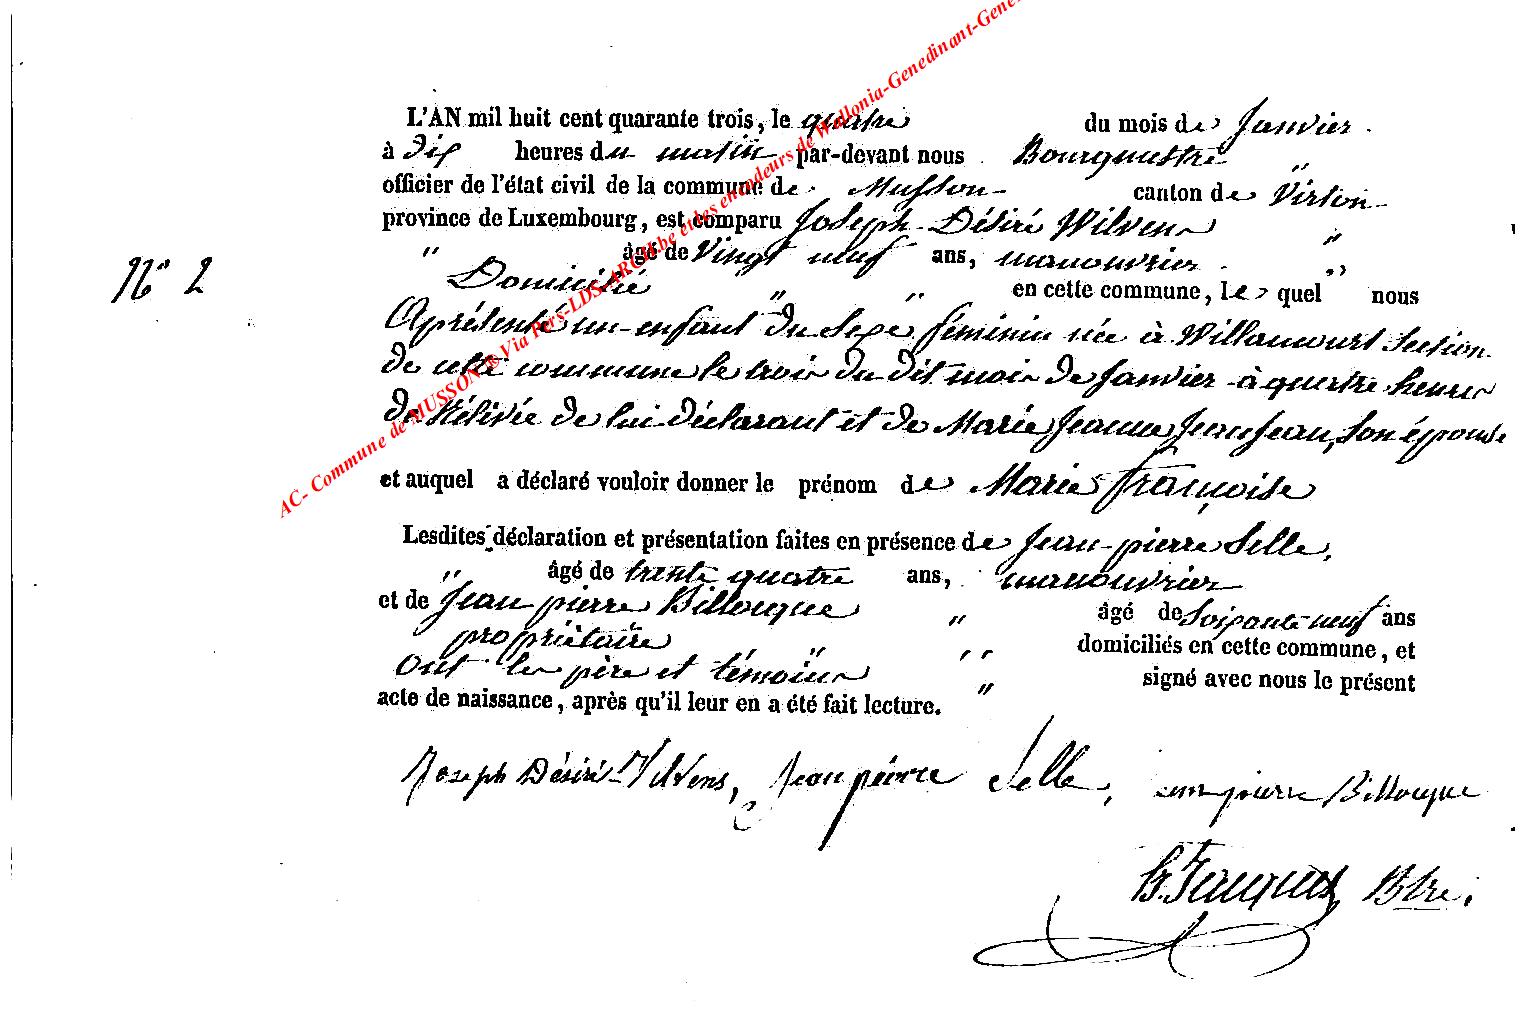 L'AN mil huit cent quarante trois, le quatre du mois de Janvier.
à Dix heures du matin par-devant nous Bourgmestre "
officier de l'état civil de la commune de Musson canton de Virton
province de Luxembourg, est comparu Joseph Désiré Wilvens "
" âgé de Vingt neuf ans, manouvrier "
Domicilié " " en cette commune, le quel nous
A présenté un enfant du sexe féminin née à Willancourt section
de cette commune le trois du dit mois de Janvier à quatre heures
de Rélivée de lui déclarant et de Marie Jeanne Jeanjean, son épouse
et auquel a déclaré vouloir donner le prénom de Marie Françoise
Lesdites déclaration et présentation faites en présence de Jean-pierre Selle,
" âgé de trente quatre ans, manouvrier
et de Jean pierre Billocque " âgé de Soixante neuf ans
propriétaire " " domiciliés en cette commune, et
Ont les père et témoins " signé avec nous le présent
acte de naissance, après qu'il leur en a été fait lecture.
N° 2
Joseph Désiré Vilvens, Jean pierre Selle, jean pierre Billocque
Jacques Btre.
AC- Commune de MUSSON ® Via Pers-LDS-ARCH.be et les encodeurs de Wallonia-Genedinant-Gene